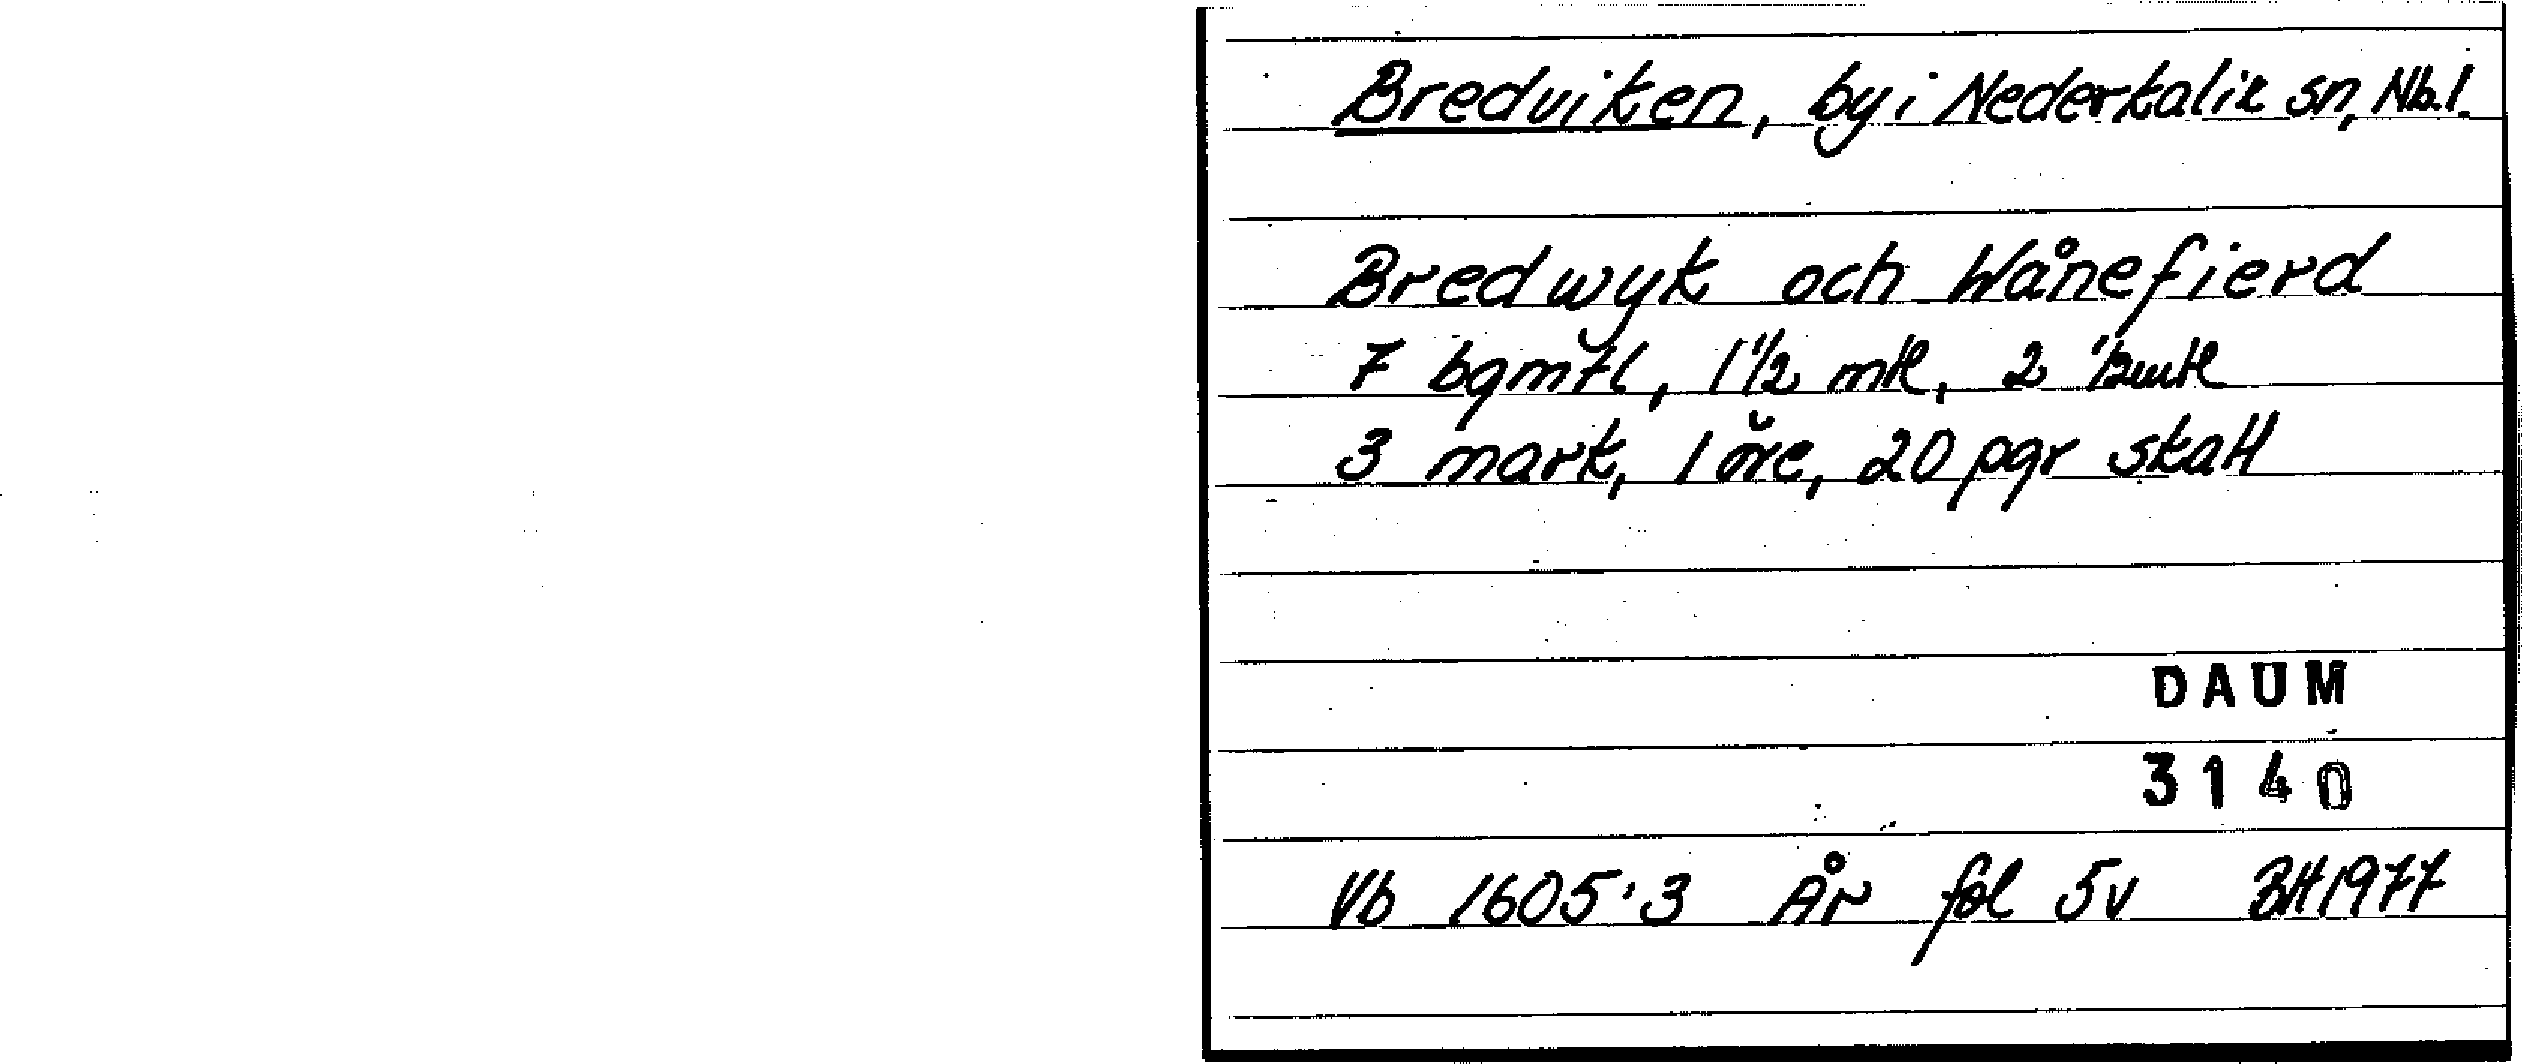 Bredviken, by i Nederkalix sn, Nb. l.
Bredwyk och Wånefierd
7 bgmtl, 1 1/2 mtl, 2 1/2mtl
3 mark, 1 öre, 20 pgr skatt
DAUM
3140
Vb 1605:3 År fol 5v BH 1977